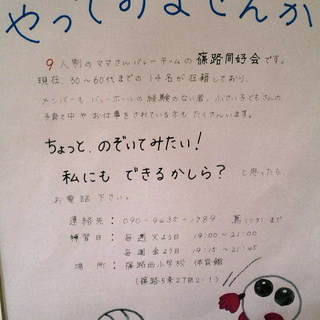 やってみませんか
9人制のママさんバレーチームの篠路同好会です。
現在、30～60代までの14名が在籍しており、
メンバーも バレーボールの経験のない者、小さい子どもさんの
子育て中や お仕事をされている方も たくさんいます。
ちょっと、のぞいてみたい！
私にも できるかしら？ と思ったら
お電話 下さい。
連絡先：
まで
練習日： 毎週 火よう日 19:00～21:00
毎週 金よう日 19:15～21:45
場所： 篠路西小学校 体育館
(篠路5条2丁目2-1)